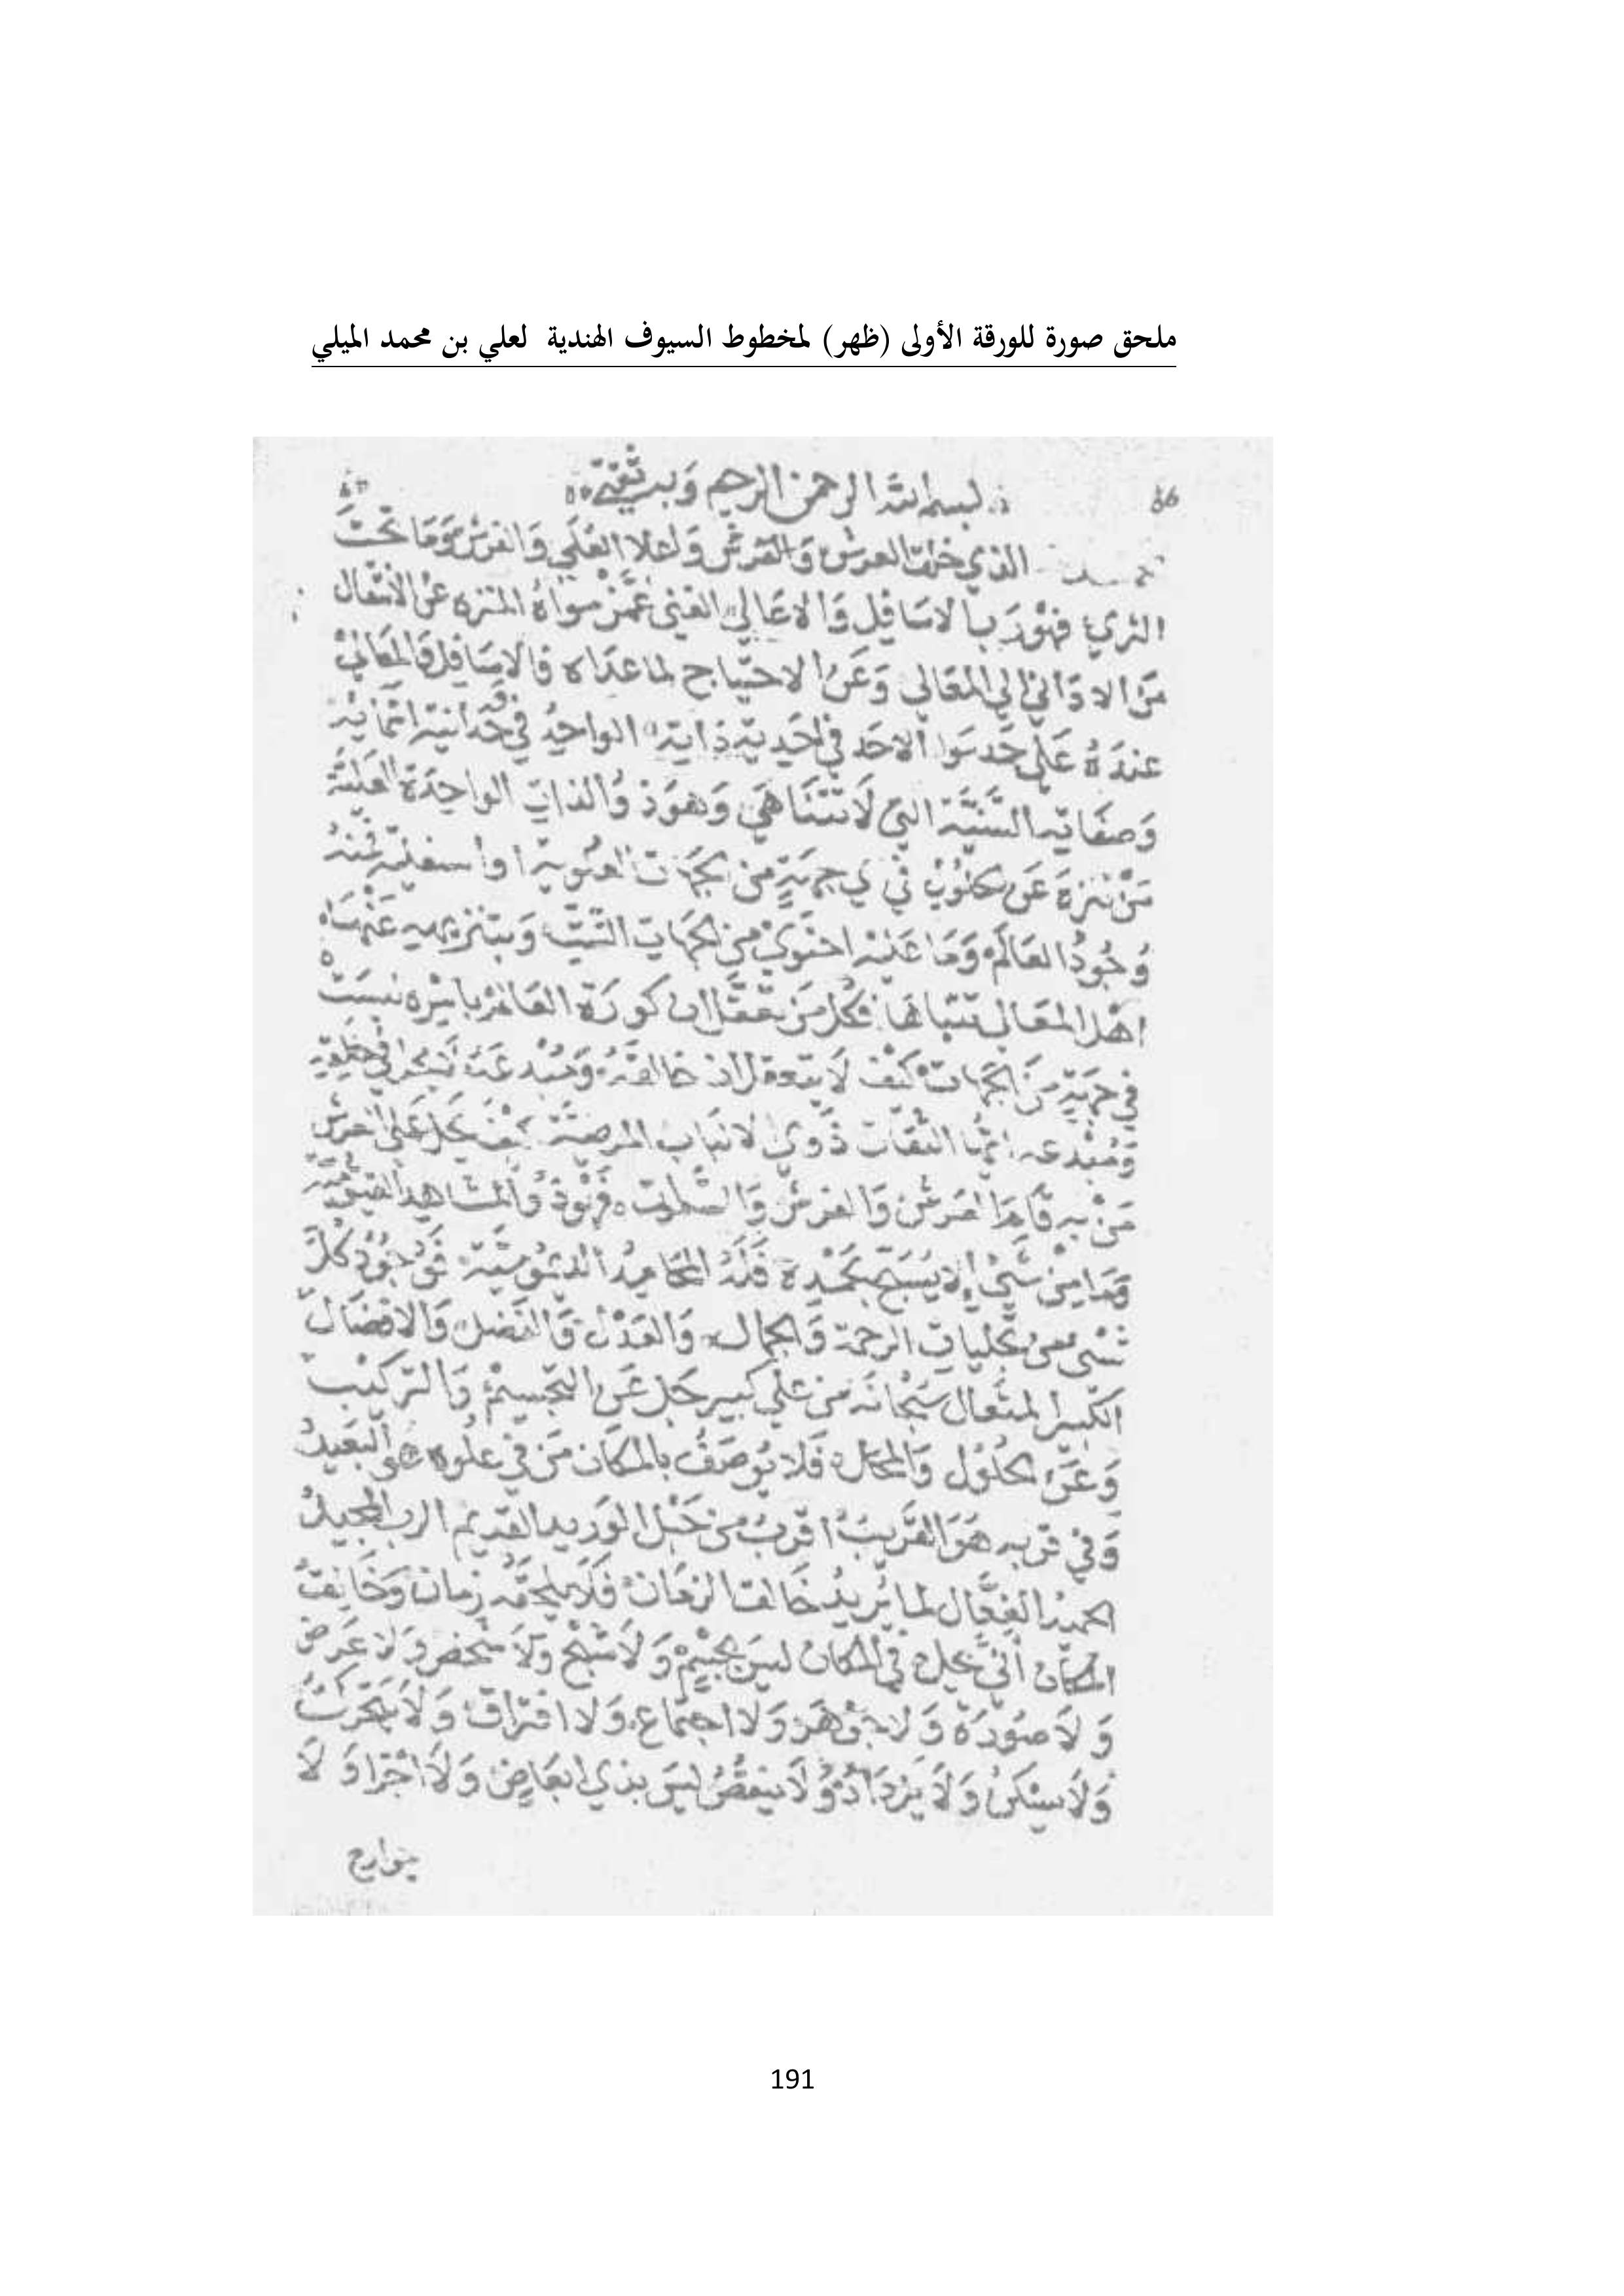 ملحق صورة للورقة الأولى (ظهر) لمخطوط السيوف الهندية لعلي بن محمد الميلي
66
بسم الله الرحمن الرحيم وبه ثقتي
الذي خلق العرش والفرش واعلا العلي والفرش وما تحت
الثري فهو رب الاسافل والاعالي الغني عمن سواه المنزه عن الانتقال
من الاداني الي المعالي وعن الاحتياج لما عداه فالاسافل والمعالي
عنده علي حد سوا الاحد في احدية ذاته الواحد في
وصفاته السنية التي لا تتناهي وهو ذو الذات الواحدة العلية
من تنزه عن في جهة من الجهات
وجود العالم وما عليه احتوي من الجهات الست وبتنزيهه عنها
اهل المعالي فكل من تعقل ان كورة العالم باسره ليست
في جهة من الجهات كيف لا يتعقل ان خالقه ومبدعه
ومبدعه ايها الثقات ذوي الالباب المرضية كيف يحل علي العرش
من به قام العرش والفرش والسموات فهو ذو المشاهد
وما من شيء الا يسبح بحمده فله المحامد وجود كل
شيء من تجليات الرحمة والجمال والعدل والفضل والافضال
الكبير المتعال سبحانه من علي كبير جل عن التجسيم والتركيب
وعن الحلول والمحال فلا يوصف بالمكان من في علوه هو البعيد
وفي قربه هو القريب اقرب من حبل الوريد القديم الرب المجيد
الحميد الفعال لما يريد خالق الزمان فلا يلحقه زمان وخالق
المكان اني يحل في المكان ليس بجسم ولا شبح ولا شخص ولا عرض
ولا صورة ولا جوهر ولا اجتماع ولا افتراق ولا يتحرك
ولا يسكن ولا يزداد ولا ينقص ليس بذي ابعاض ولا اجزا ولا
جوارح
191